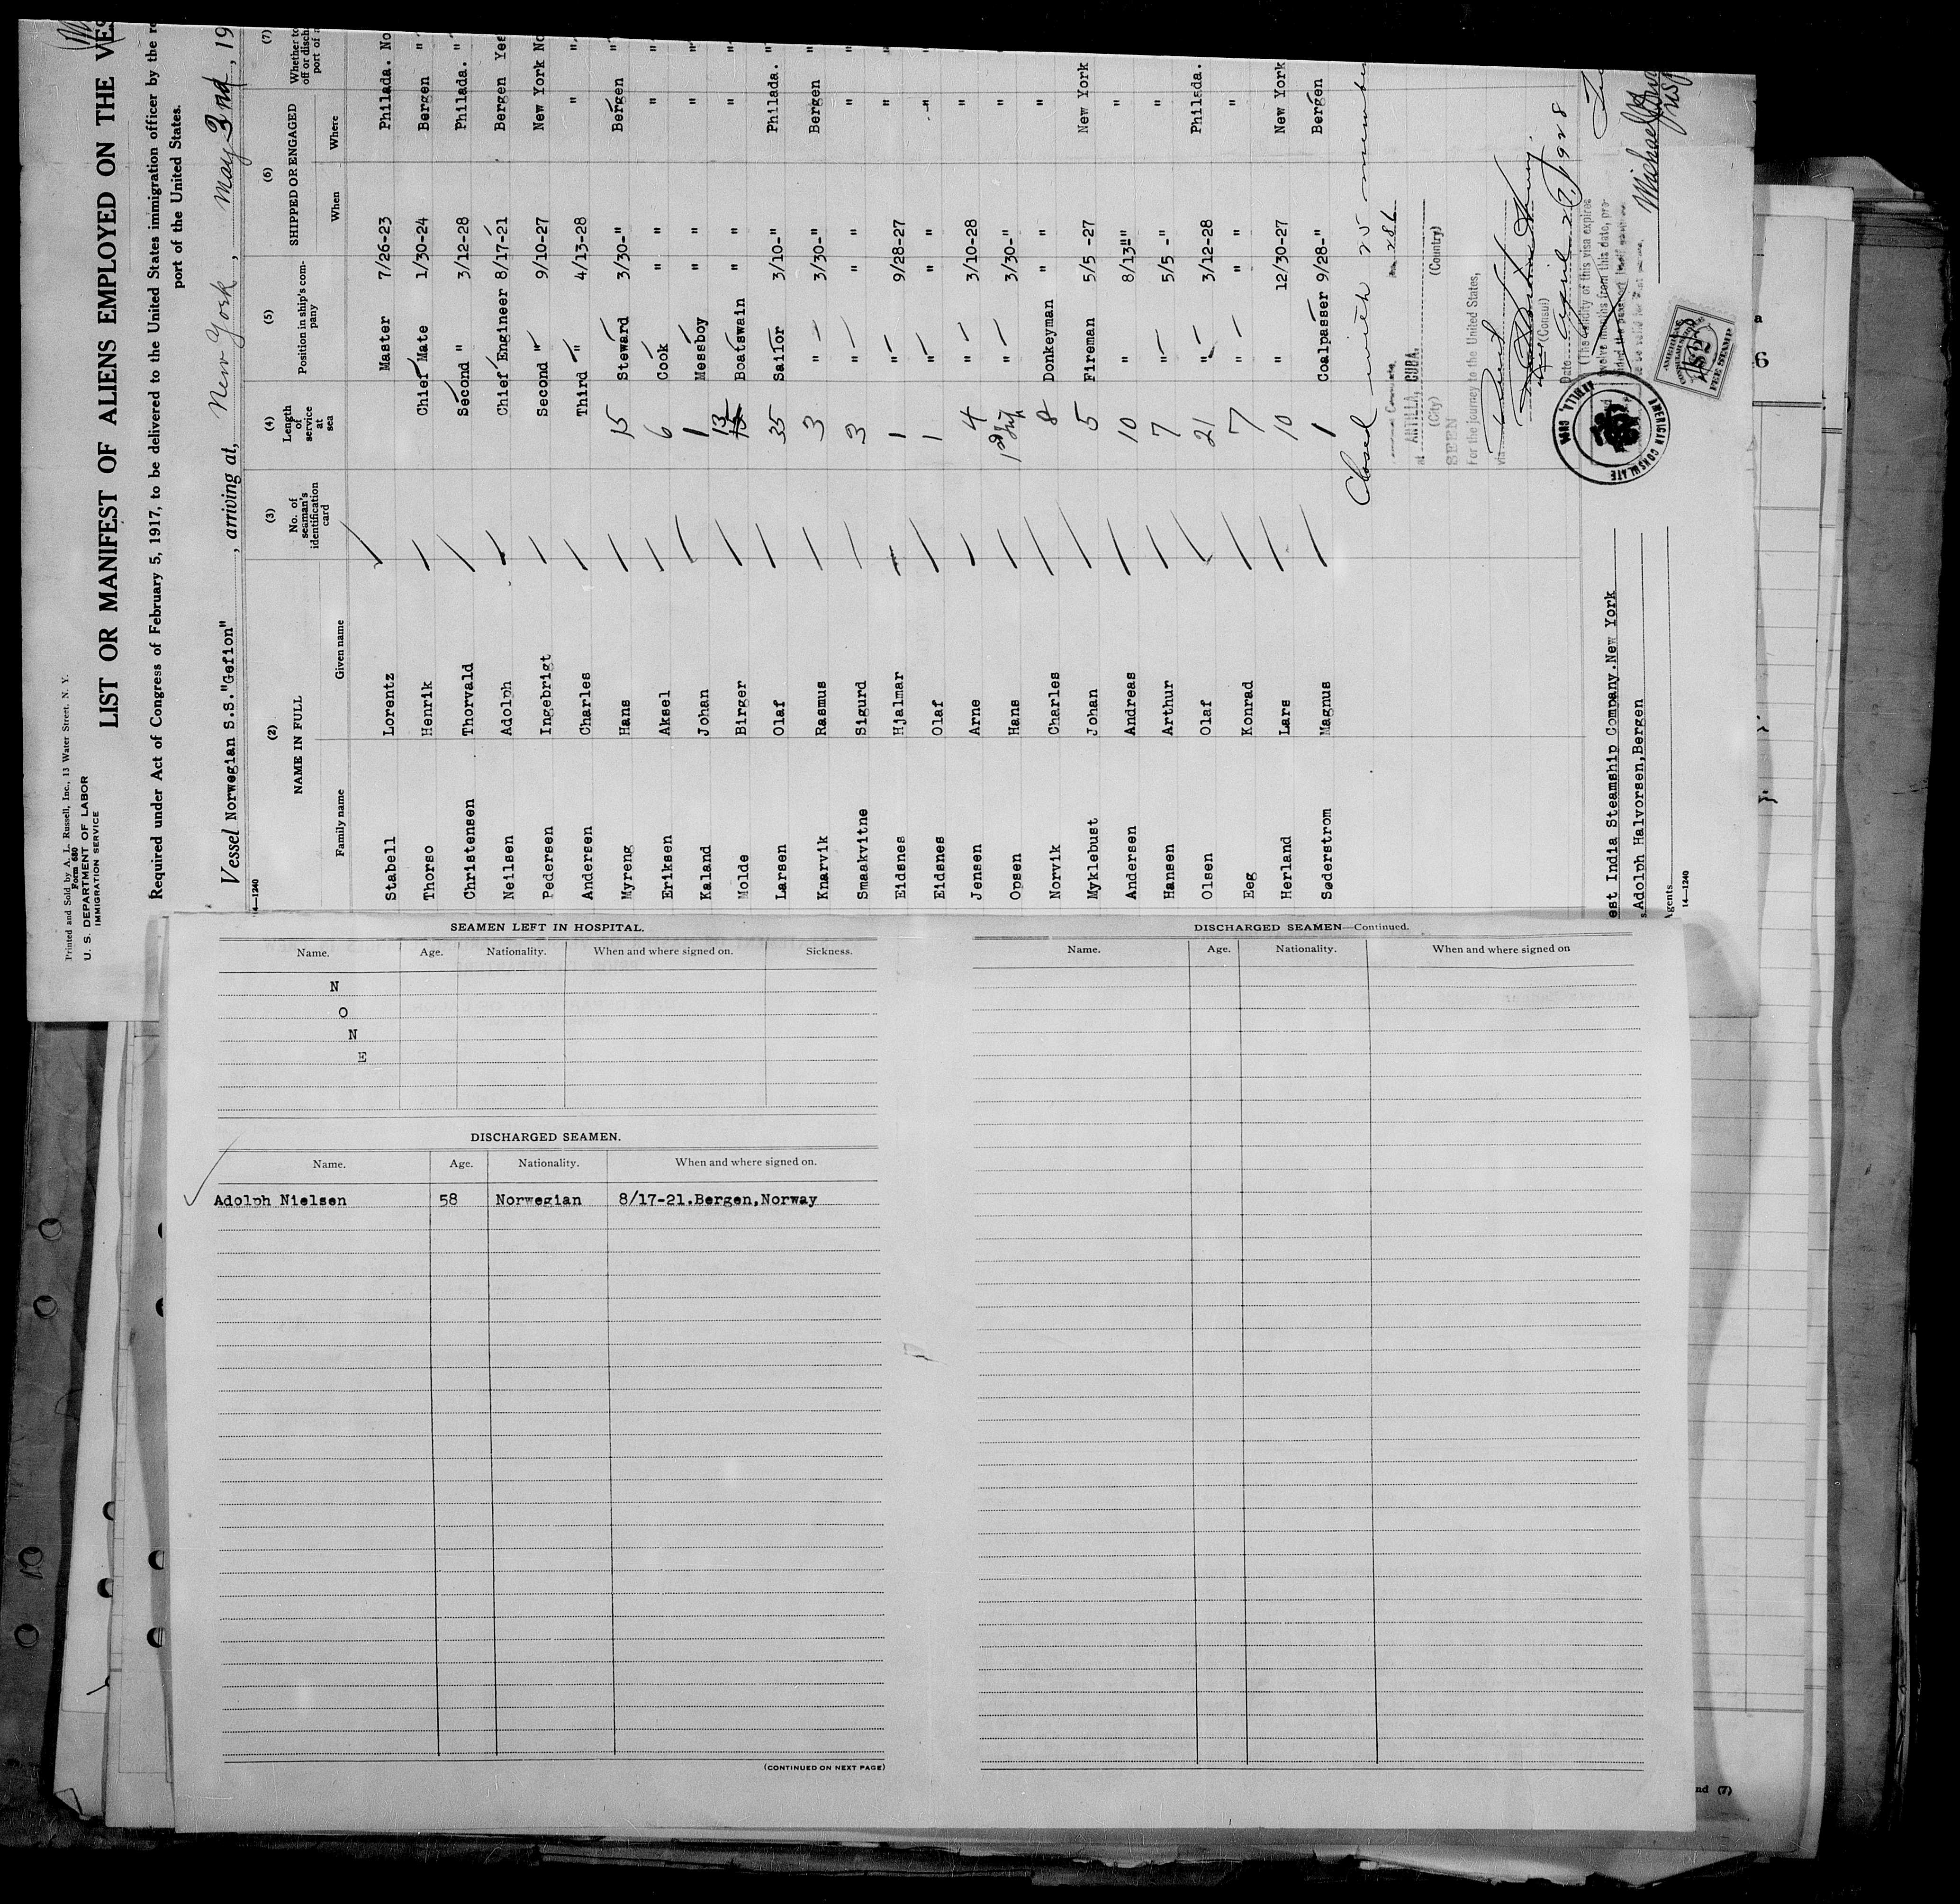 Printed and Sold by A. L. Russell, Inc., 13 Water Street. N. Y.
Form 680
U. S. DEPARTMENT OF LABOR
IMMIGRATION SERVICE
LIST OR MANIFEST OF ALIENS EMPLOYED ON THE VES
Required under Act of Congress of February 5, 1917, to be delivered to the United States immigration officer by the re
port of the United States.
Vessel Norwegian S.S."Gefion", arriving at, New York, May 2nd, 19
14—1240
(2) (3) (4) (5) (6) (7)
NAME IN FULL No. of seaman's identification card Length of service at sea Position in ship's company SHIPPED OR ENGAGED Whether to
off or disch
port of a
Family name Given name When Where
Stabell Lorentz Master 7/26-23 Philada. No
Thorso Henrik Chief Mate 1/30-24 Bergen "
Christensen Thorvald Second " 3/12-28 Philada. "
Neilsen Adolph Chief Engineer 8/17-21 Bergen Yes
Pedersen Ingebrigt Second " 9/10-27 New York No
Andersen Charles Third " 4/13-28 " "
Myreng Hans 15 Steward 3/30-" Bergen "
Eriksen Aksel 6 Cook " " "
Kaland Johan 1 Messboy " " "
Molde Birger 13 Boatswain " " "
Larsen Olaf 35 Sailor 3/10-" Philada. "
Knarvik Rasmus 3 " 3/30-" Bergen "
Smaakvitne Sigurd 3 " " " "
Eidsnes Hjalmar 1 " 9/28-27 " "
Eidsnes Olaf 1 " " " "
Jensen Arne 4 " 3/10-28 " "
Opsen Hans 1st trip " 3/30-" " "
Norvik Charles 8 Donkeyman " " "
Myklebust Johan 5 Fireman 5/5 -27 New York
Andersen Andreas 10 " 8/13"" "
Hansen Arthur 7 " 5/5 -" "
Olsen Olaf 21 " 3/12-28 Philada.
Eeg Konrad 7 " " "
Herland Lars 10 " 12/30-27 New York
Søderstrom Magnus 1 Coalpasser 9/28-" Bergen
Closed with 25 member
No. 286
at ANTILLA, CUBA.
(City) (Country)
SEEN
For the journey to the United States,
via
(Consul)
Date April 27, 1928
(The validity of this visa expires
twelve months from this date, pro-
AMERICAN CONSULATE
ANTILLA, CUBA
AMERICAN
$2
FEE STAMP
Michael
est India Steamship Company.New York
Adolph Halvorsen,Bergen
Agents
14—1240
SEAMEN LEFT IN HOSPITAL.
Name. Age. Nationality. When and where signed on. Sickness.
N
O
N
E
DISCHARGED SEAMEN.
Name. Age. Nationality. When and where signed on.
Adolph Nielsen 58 Norwegian 8/17-21.Bergen,Norway
(CONTINUED ON NEXT PAGE)
DISCHARGED SEAMEN—Continued.
Name. Age. Nationality. When and where signed on
a
6
nd (7)